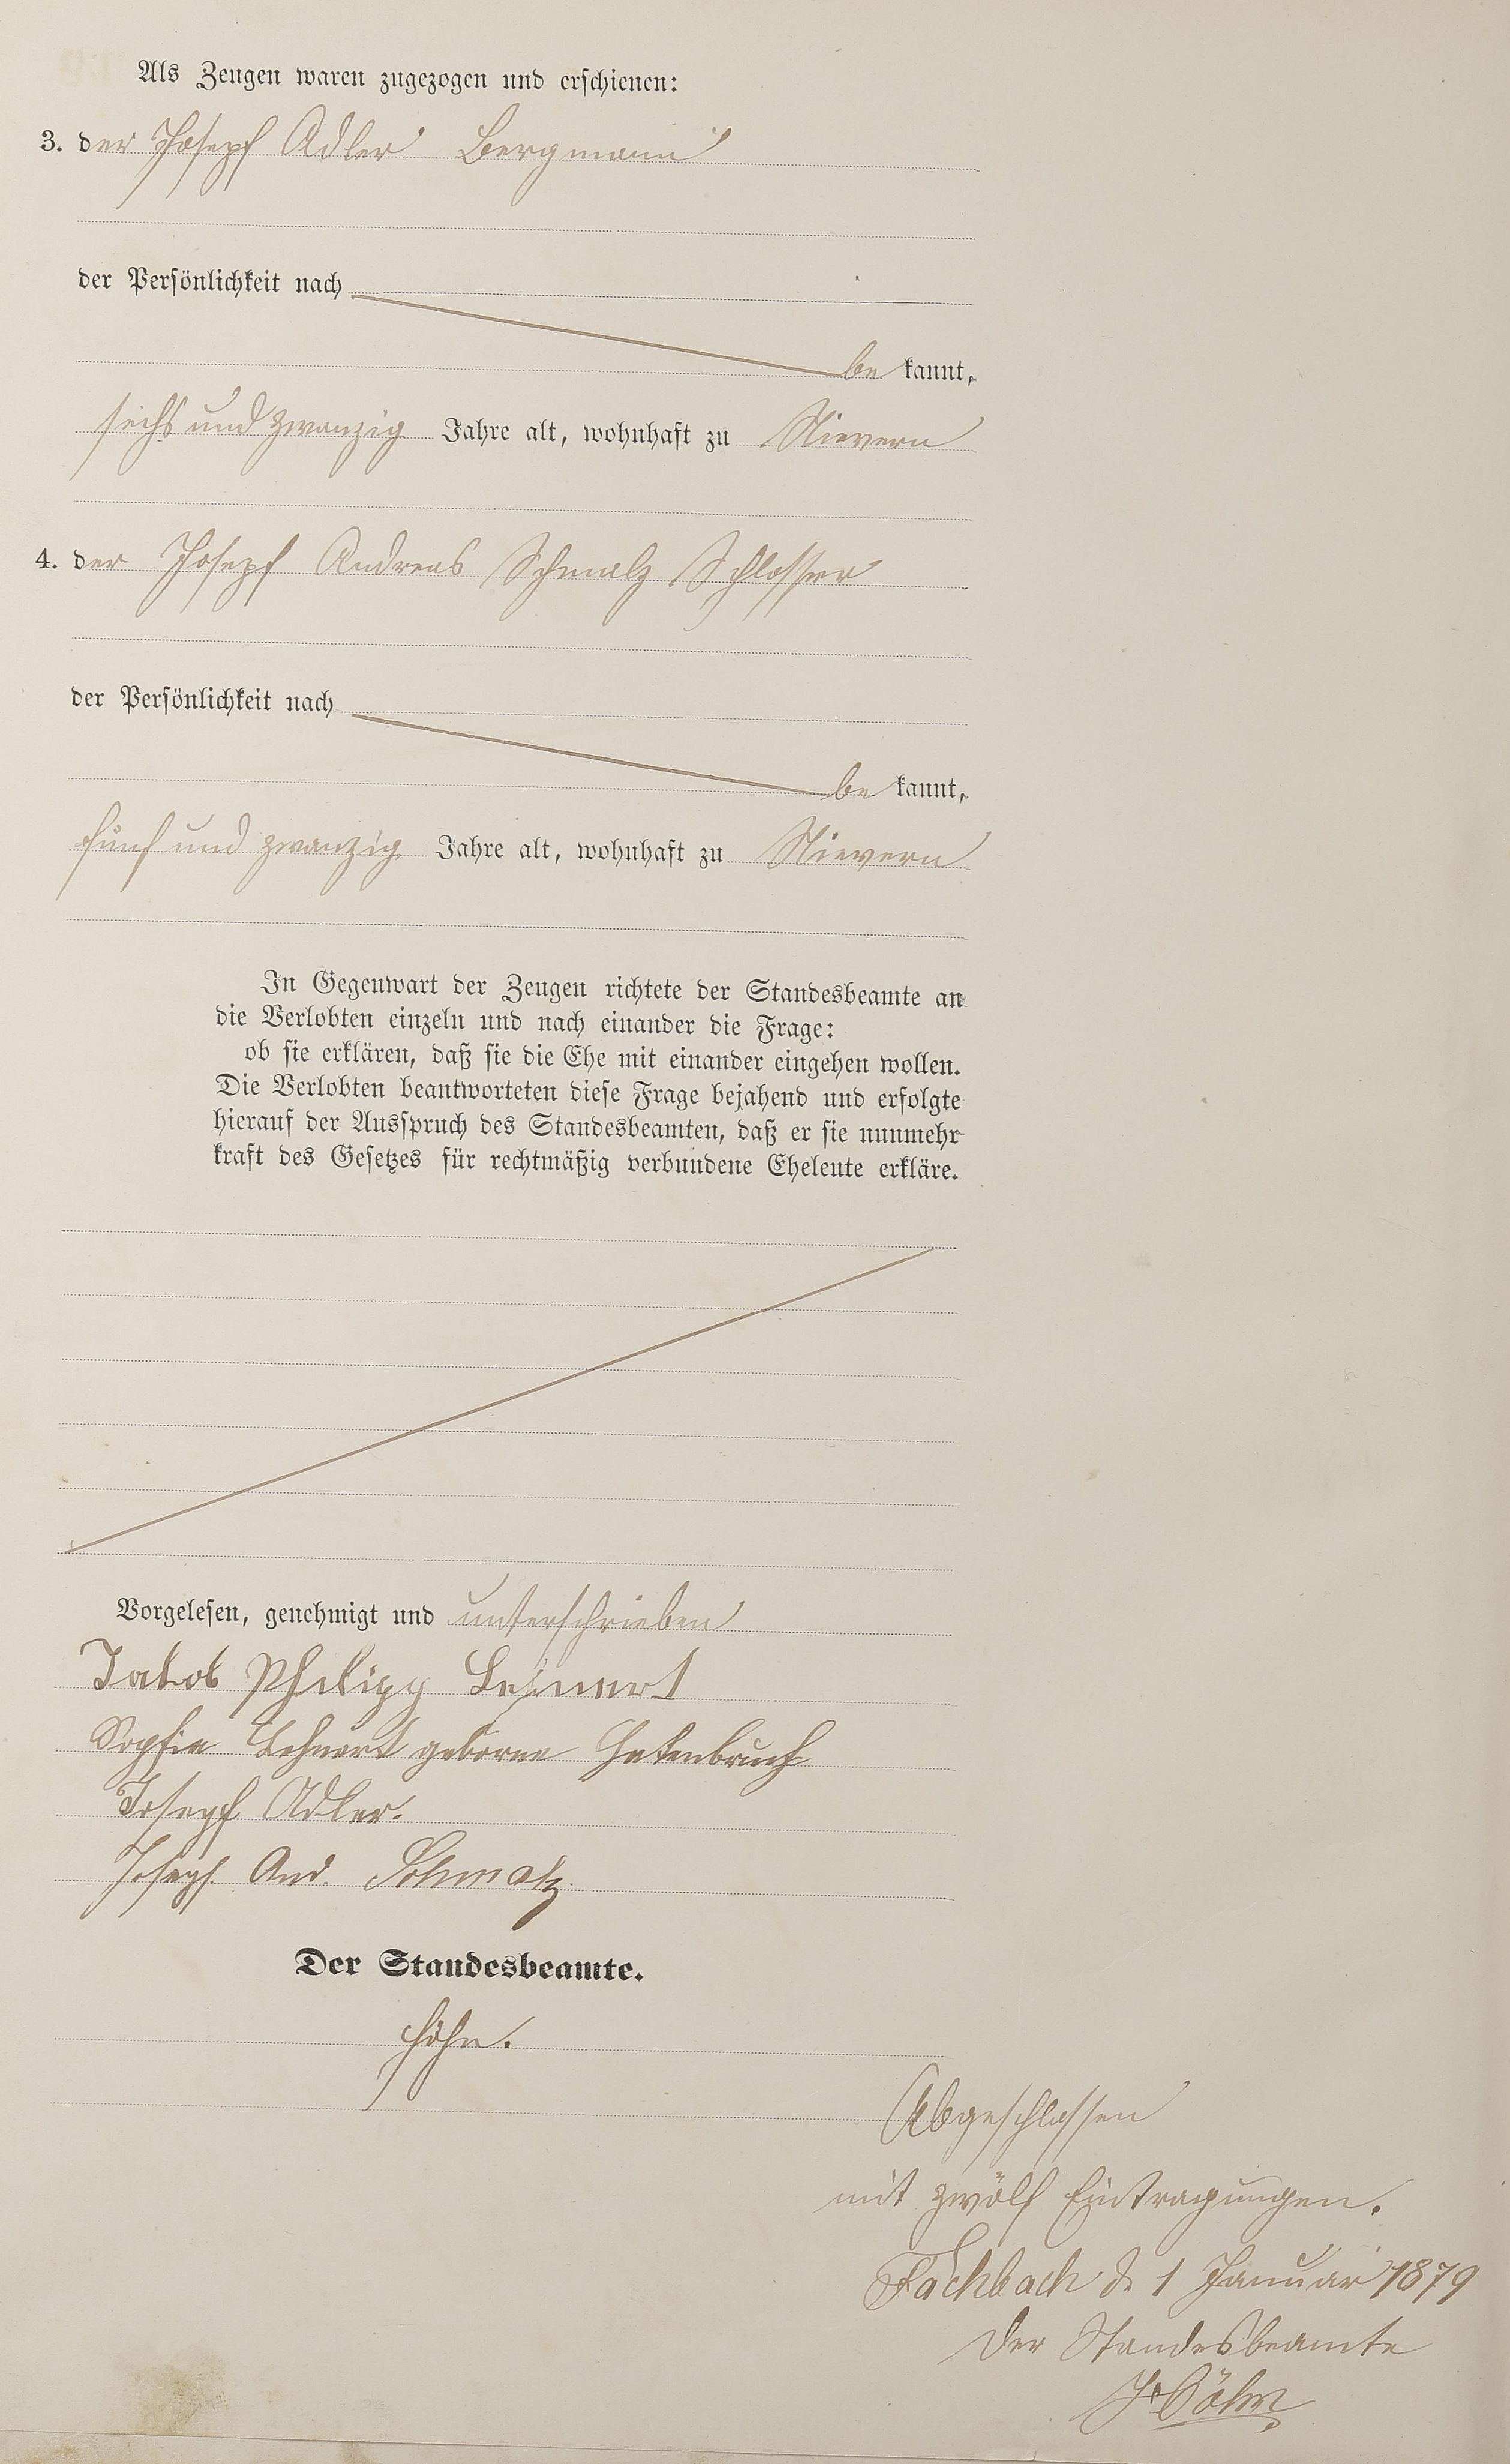 Als Zeugen waren zugezogen und erschienen:
3. der Joseph Adler Bergmann
der Persönlichkeit nach
be kannt,
sechs und zwanzig Jahre alt, wohnhaft zu Nievern
4. der Joseph Andreas Schmalz Schlosser
der Persönlichkeit nach
be kannt,
fünf und zwanzig Jahre alt, wohnhaft zu Nievern
In Gegenwart der Zeugen richtete der Standesbeamte an
die Verlobten einzeln und nach einander die Frage:
ob sie erklären, daß sie die Ehe mit einander eingehen wollen.
Die Verlobten beantworteten diese Frage bejahend und erfolgte
hierauf der Ausspruch des Standesbeamten, daß er sie nunmehr
kraft des Gesetzes für rechtmäßig verbundene Eheleute erkläre.
Vorgelesen, genehmigt und unterschrieben
Jakob Philipp Lehnert
Sophie Lehnert geborne Hakenbruch
Joseph Adler.
Joseph And. Schmalz
Der Standesbeamte.
Höhn.
Abgeschlossen
mit zwölf Eintragungen.
Fachbach d. 1 Januar 1879
Der Standesbeamte
Höhn